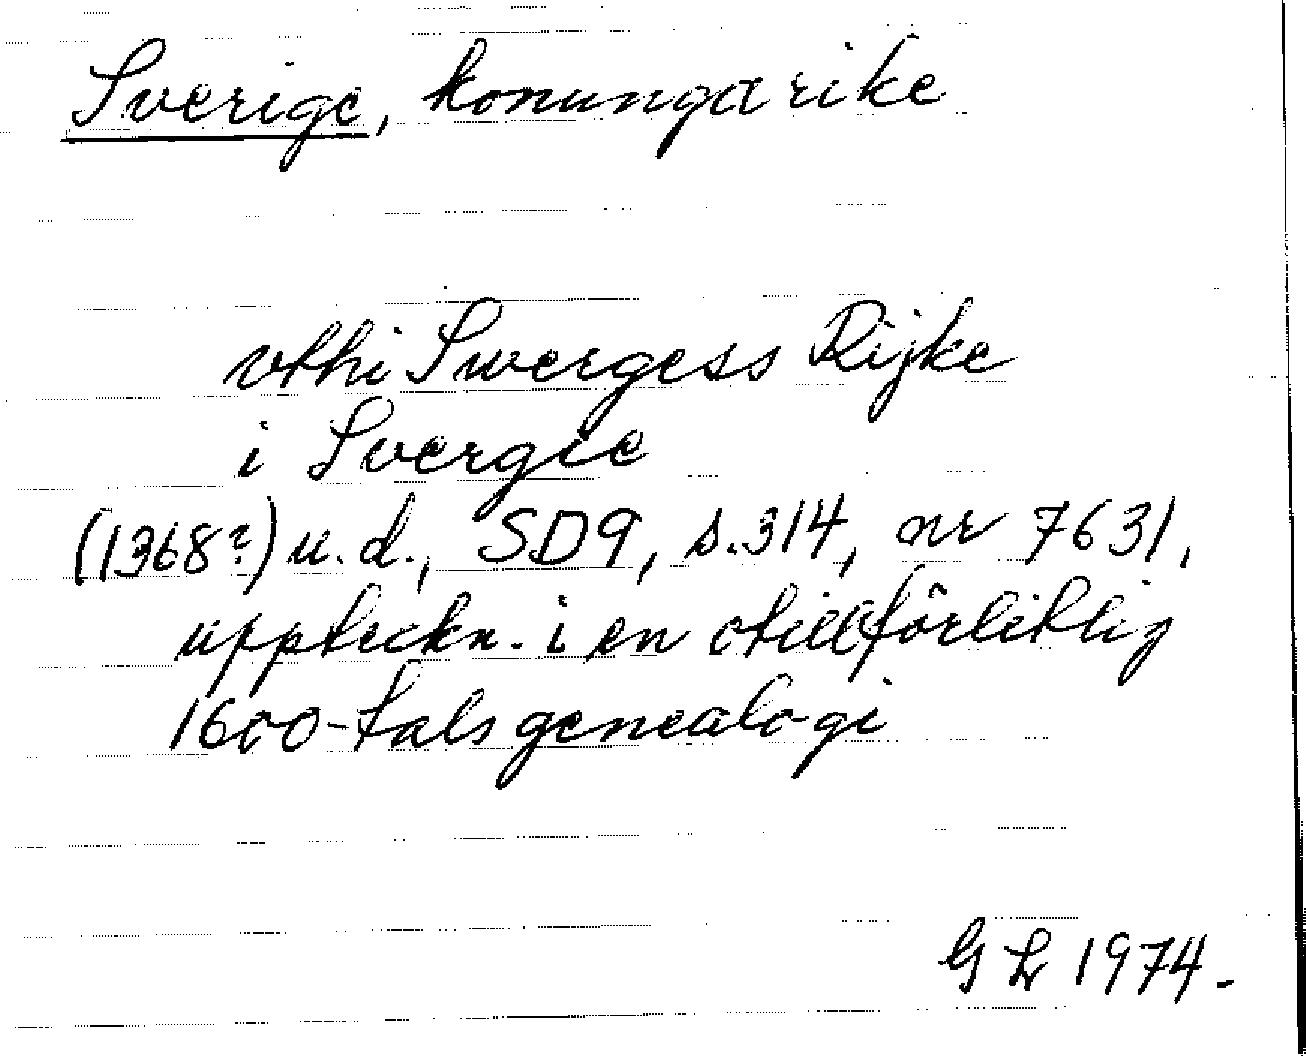 Sverige, konungarike
vthi Swergess Rijke
i Svergie
(1368?) u.d., SD9, s.314, nr 7631,
uppteckn. i en otillförlitlig
1600-talsgenealogi
GL 1974.